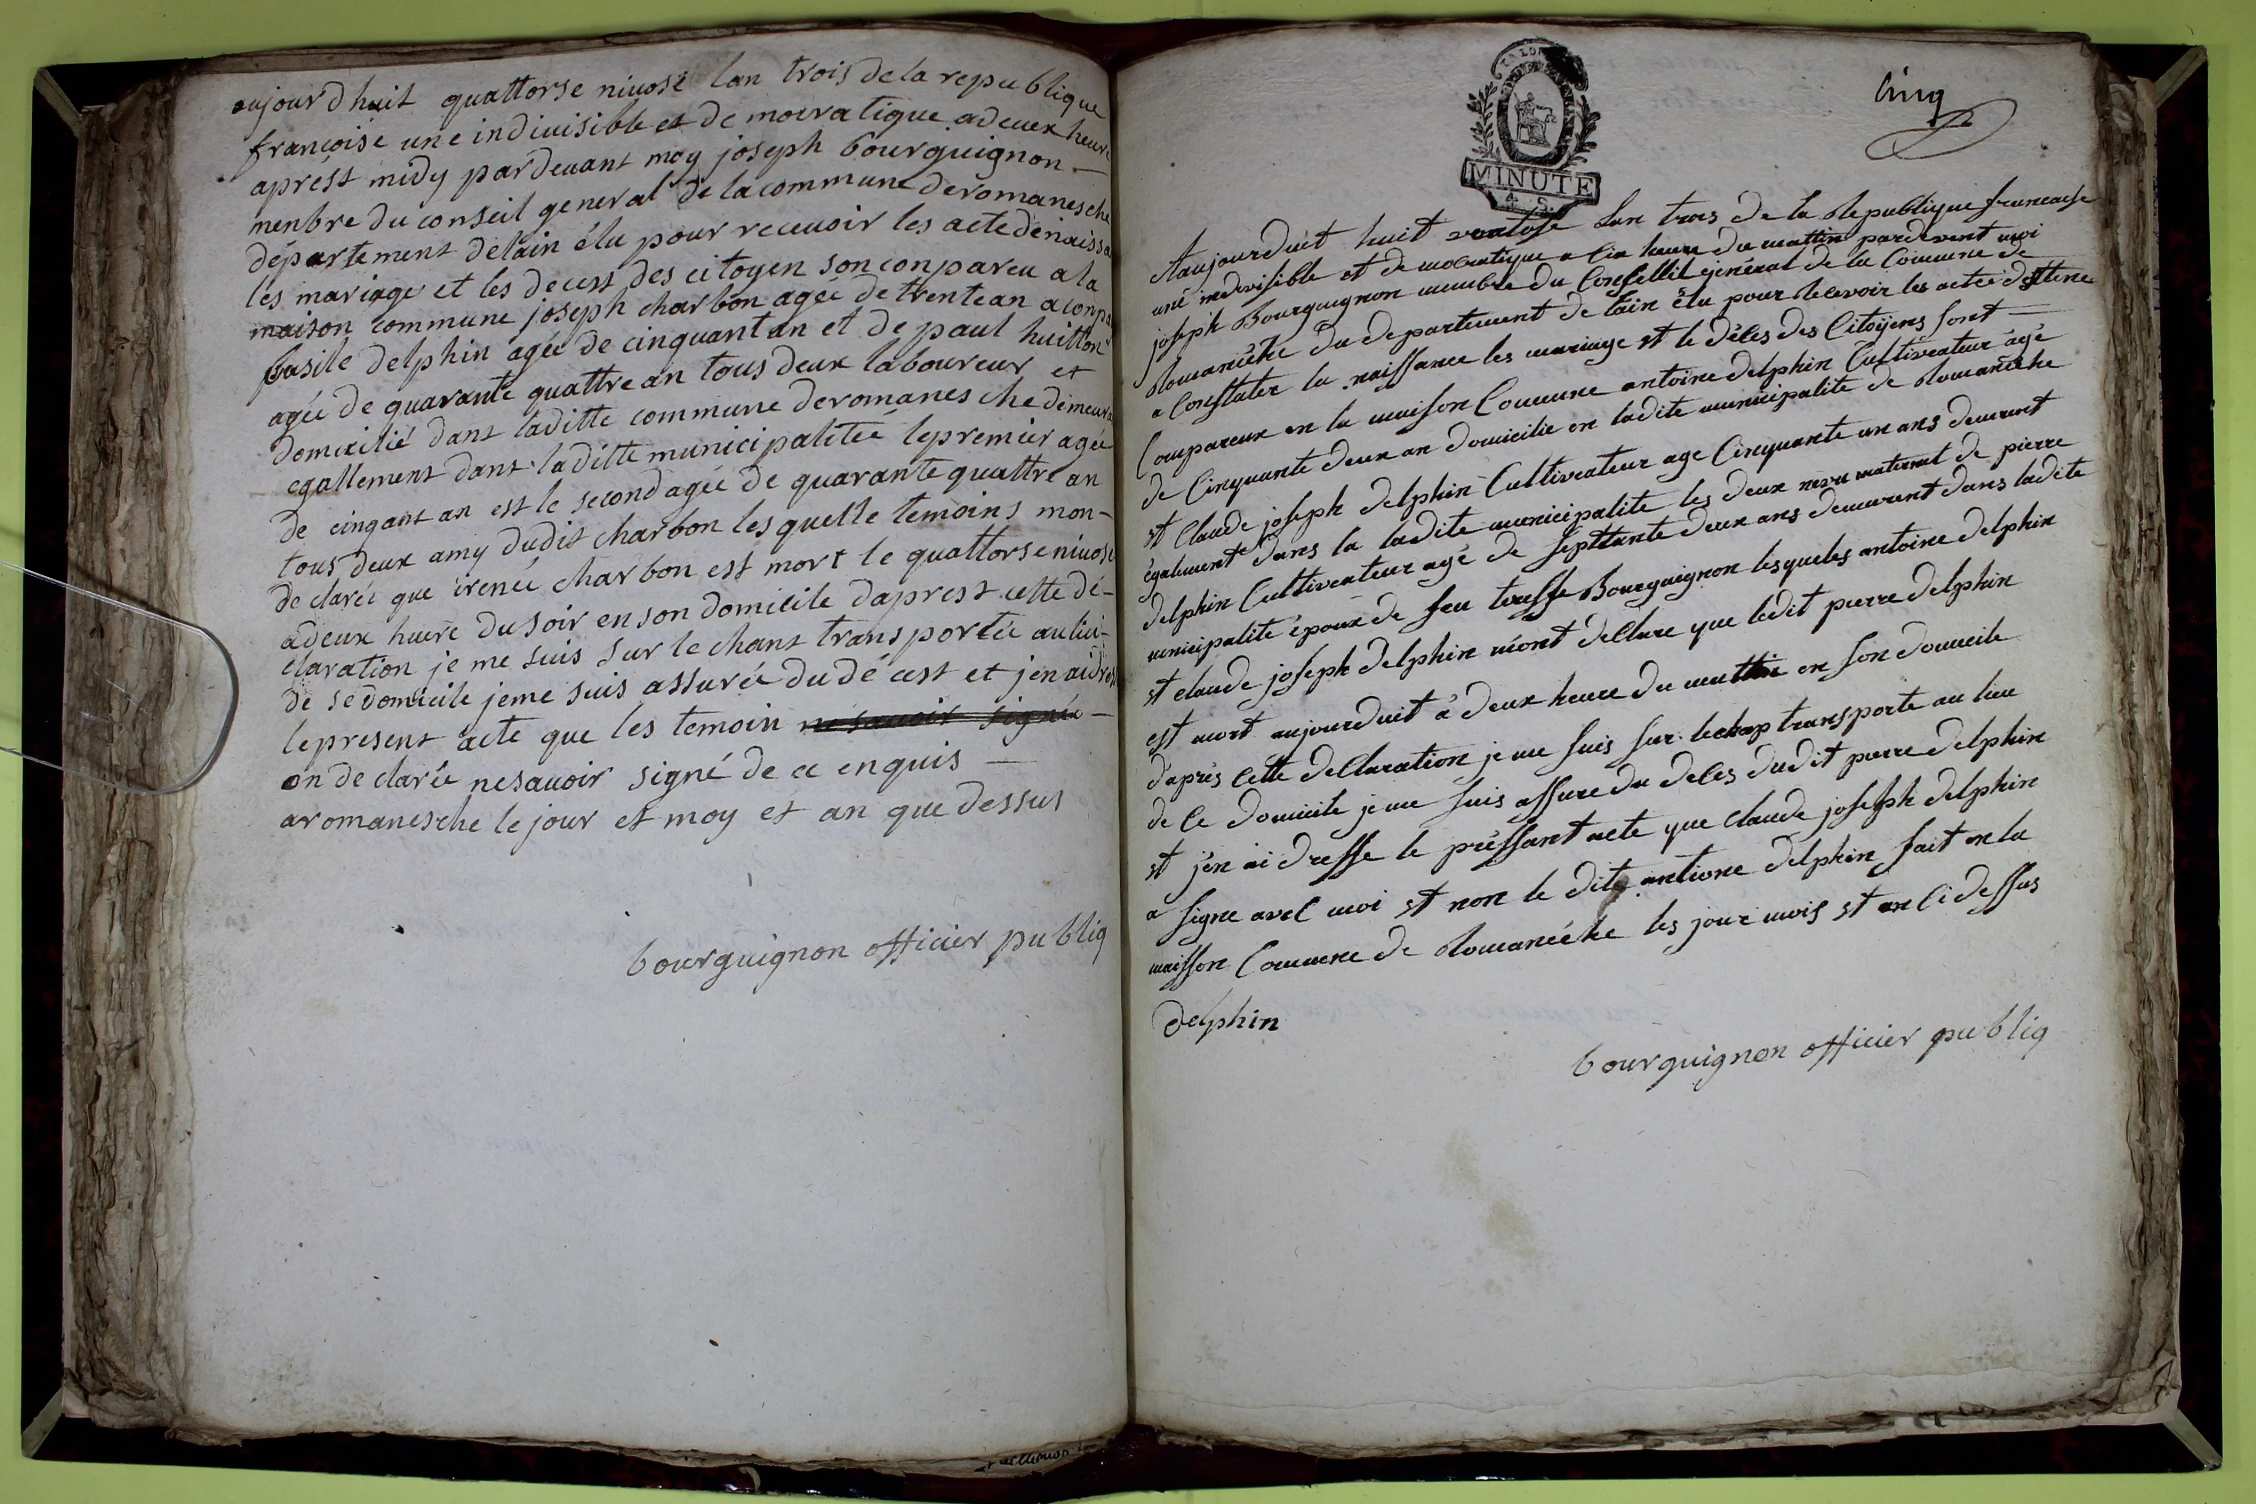 aujourdhuit quattorse nivose lan trois dela republique
francoise une indivisible et de mocratique adeuex heure
aprést midy pardevant moy joseph bourguignon —
menbre du conseil general de lacommune deromanesche
département delain élu pour recevoir les acte de naissa
les mariage et les decest des citoyen son conpareu a la
maison commune joseph charbon agée de trentean aconpa
basile delphin agée de cinquantan et de paul huitton
agée de quarante quattre an tous deux laboureur et
domicilié dant laditte commune deromanesche demeura
egallement dant laditte municipalitée lepremier agée
de cinqant an est le second agée de quarante quattre an
tous deux amy dudit charbon lesquelle temoins mon-
declarée que irenée charbon est mort le quattorse nivose
adeux huere dusoir enson domicile daprest cette dé-
claration je me suis sur le chant transportée au lieu-
de sedomicile jeme suis assurée dudé cest et jenaidres
lepresent acte que les temoin ne savoir signé —
on declarée nesavoir signé de ce enquis —
aromanesche lejour et moy et an que dessus
bourguignon officier publiq
MINUTE
4. S.
Cinq
Aaujourduit huit ventose Lan trois de la Republique francaise
une indivisible et democratique a six heure du mattin pardevent moi
joseph Bourguignon membre du Consellil général de la Commune de
Romanéche du departement de lain élu pour Recevoir les actes destine
a Constater la naissance les mariage et le déces des Citoÿens sont —
Compareux en la maison Commune antoine delphin Cultiveateur agé
de Cinquante deux an domicilie en ladite municipalite de Romanéche
et Claude joseph delphin Cultiveateur age Cinquante un ans demurent
également dans la ladite municipalite les deux neveu maternel de pierre
delphin Cultiveateur agé de septtante deux ans demurent dans ladite
municipalite époux de feu Bourguignon lesqueles antoine delphin
et claude joseph delphin m'ont declare que ledit pierre delphin
est mort aujourduit à deux heure du mattin en son domicile
d'aprés cette declaration je me suis sur lechap transporte au lieu
de ce domicile je me suis assure du deces dudit pierre delphin
et j'en ai dresse le préssant acte que claude joseph delphin
a signe avec moi et non le dite antione delphin fait en la
maisson Commune de Romanéche les jour mois et an ci dessus
delphin
bourguignon officier publiq